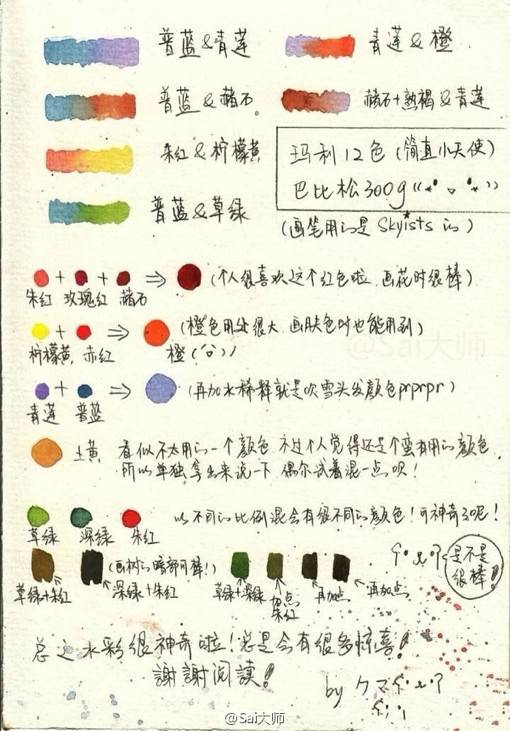 普蓝&青莲
青莲&橙
普蓝&赭石
赭石+熟褐&青莲
朱红&柠檬黄
普蓝&草绿
玛利12色(简直小天使)
巴比松300g
(画笔用的是Skyists的)
朱红+玫瑰红+赭石⇒(个人很喜欢这个红色啦,画花时很棒)
柠檬黄+赤红⇒橙(橙色用处很大,画肤色时也能用到)
青莲+普蓝⇒(再加水稀释就是吹雪头发颜色prprpr)
土黄 看似不太用的一个颜色,不过个人觉得还是个蛮有用的颜色.
所以单独拿出来说一下 偶尔试着混一点呗!
草绿 深绿 朱红 以不同的比例混会有很不同的颜色!可神奇了呢!
(画树的暗部可棒!)
草绿+朱红
深绿+朱红
草绿+深绿
加点朱红
再加点
再加点
是不是
很棒!
总之水彩很神奇啦!总是会有很多惊喜!
謝謝阅读!
by クマ
@Sai大师
@Sai大师